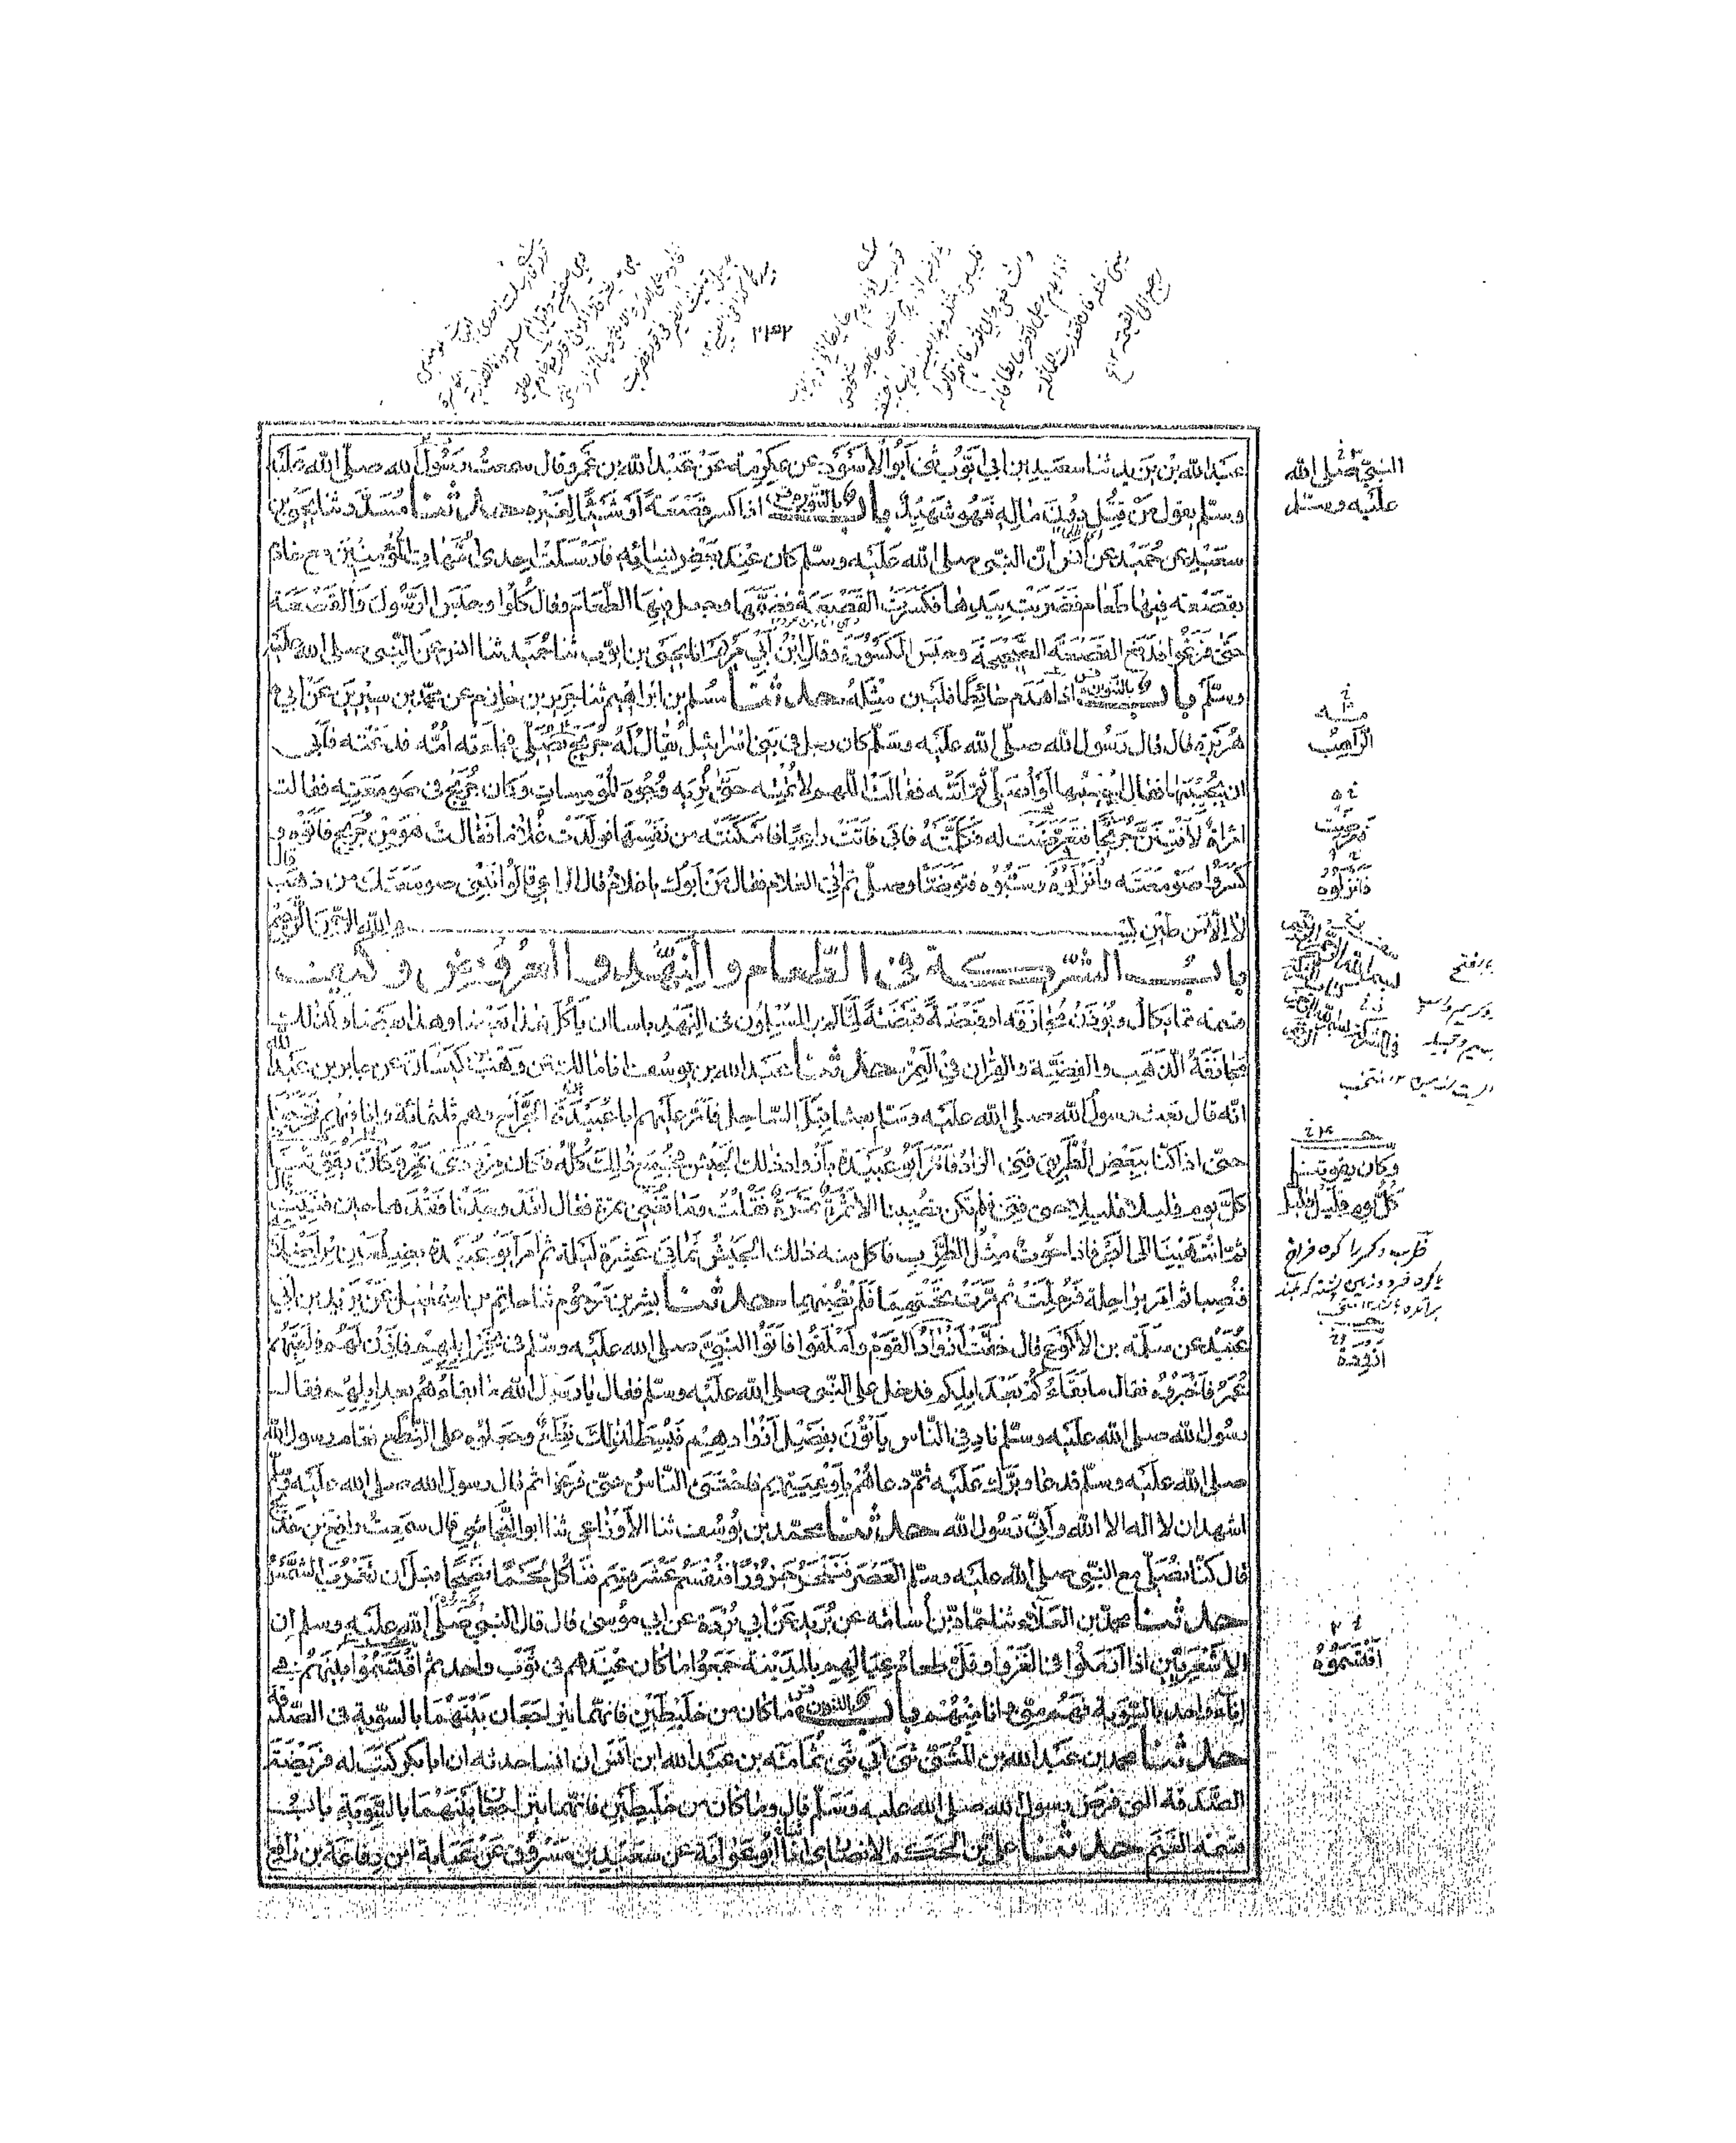 عبد الله بن يزيد ثنا سعيد بن ابي ايوب ثنى ابو الاسود عن عكرمة عن عبد الله بن عمرو قال سمعت رسول الله صلى الله عليه
وسلم يقول من قتل دون ماله فهو شهيد باب بالتنوين اذا كسر قصعة او شيئا لغيره حدثنا مسدد ثنا يحيى بن
سعيد عن حميد عن انس ان النبي صلى الله عليه وسلم كان عند بعض نسائه فارسلت احدى امهات المؤمنين مع خادم
بقصعة فيها طعام فضربت بيدها فكسرت القصعة فضمها وجعل فيها الطعام وقال كلوا وحبس الرسول والقصعة
حتى فرغوا فدفع القصعة الصحيحة وحبس المكسورة وقال ابن ابي مريم انا يحيى بن ايوب ثنا حميد ثنا انس عن النبي صلى الله عليه
وسلم باب بالتنوين اذا هدم حائطا فليبن مثله حدثنا مسلم بن ابراهيم ثنا جرير بن حازم عن محمد بن سيرين عن ابي
هريرة قال قال رسول الله صلى الله عليه وسلم كان رجل في بني اسرائيل يقال له جريج يصلي فجاءته امه فدعته فابى
ان يجيبها فقال اجيبها او اصلي ثم اتته فقالت اللهم لا تمته حتى تريه وجوه المومسات وكان جريج في صومعته فقالت
امراة لافتنن جريجا فتعرضت له فكلمته فابى فاتت راعيا فامكنته من نفسها فولدت غلاما فقالت هو من جريج فاتوه و
كسروا صومعته وانزلوه وسبوه فتوضا وصلى ثم اتى الغلام فقال من ابوك يا غلام قال الراعي قالوا نبني صومعتك من ذهب قال
لا الا من طين بسم الله الرحمن الرحيم
باب الشركة في الطعام والنهد والعروض وكيف
قسمة ما يكال ويوزن مجازفة او قبضة قبضة لما لم ير المسلمون في النهد باسا ان ياكل هذا بعضا وهذا بعضا وكذلك
مجازفة الذهب والفضة والقران في التمر حدثنا عبد الله بن يوسف انا مالك عن وهب بن كيسان عن جابر بن عبد الله
انه قال بعث رسول الله صلى الله عليه وسلم بعثا قبل الساحل فامر عليهم ابا عبيدة بن الجراح وهم ثلثمائة وانا فيهم فخرجنا
حتى اذا كنا ببعض الطريق فنى الزاد فامر ابو عبيدة بازواد ذلك الجيش فجمع ذلك كله فكان مزودي تمر وكان يقوتنا
كل يوم قليلا قليلا حتى فنى فلم تكن تصيبنا الا تمرة تمرة فقلت وما تغني تمرة فقال لقد وجدنا فقدها حين فنيت قال
ثم انتهينا الى البحر فاذا حوت مثل الظرب فاكل منه ذلك الجيش ثماني عشرة ليلة ثم امر ابو عبيدة بضلعين من اضلاعه
فنصبا ثم امر براحلة فرحلت ثم مرت تحتهما فلم تصبهما حدثنا بشر بن مرحوم ثنا حاتم بن اسمعيل عن يزيد بن ابي
عبيد عن سلمة بن الاكوع قال خفت ازواد القوم واملقوا فاتوا النبي صلى الله عليه وسلم في نحر ابلهم فاذن لهم فلقيهم
عمر فاخبروه فقال ما بقاؤكم بعد ابلكم فدخل على النبي صلى الله عليه وسلم فقال يا رسول الله ما بقاؤهم بعد ابلهم فقال
رسول الله صلى الله عليه وسلم ناد في الناس ياتون بفضل ازوادهم فبسط لذلك نطع وجعلوه على النطع فقام رسول الله
صلى الله عليه وسلم فدعا وبرك عليه ثم دعاهم باوعيتهم فاحتثى الناس حتى فرغوا ثم قال رسول الله صلى الله عليه وسلم
اشهد ان لا اله الا الله واني رسول الله حدثنا محمد بن يوسف ثنا الاوزاعي ثنا ابو النجاشي قال سمعت رافع بن خديج
قال كنا نصلي مع النبي صلى الله عليه وسلم العصر فننحر جزورا فتقسم عشر قسم فناكل لحما نضيجا قبل ان تغرب الشمس
حدثنا محمد بن العلاء ثنا حماد بن اسامة عن بريد عن ابي بردة عن ابي موسى قال قال النبي صلى الله عليه وسلم ان
الاشعريين اذا ارملوا في الغزو او قل طعام عيالهم بالمدينة جمعوا ما كان عندهم في ثوب واحد ثم اقتسموا بينهم في
اناء واحد بالسوية فهم مني وانا منهم باب بالتنوين ما كان من خليطين فانهما يتراجعان بينهما بالسوية في الصدقة
حدثنا محمد بن عبد الله بن المثنى ثنى ابي ثنى ثمامة بن عبد الله ابن انس ان انسا حدثه ان ابا بكر كتب له فريضة
الصدقة التي فرض رسول الله صلى الله عليه وسلم قال وما كان من خليطين فانهما يتراجعان بينهما بالسوية باب
قسمة الغنم حدثنا علي بن الحكم الانصاري انا ابو عوانة عن سعيد بن مسروق عن عباية ابن رفاعة بن رافع
النبي صلى الله
عليه وسلم
مثله
الراهب
فانزلوه
وكان يقوتنا
كل يوم قليلا قليلا
ازودة
اقتسموه